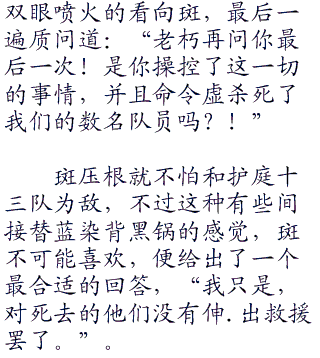 双眼喷火的看向斑，最后一
遍质问道：“老朽再问你最
后一次！是你操控了这一切
的事情，并且命令虚杀死了
我们的数名队员吗？！”
斑压根就不怕和护庭十
三队为敌，不过这种有些间
接替蓝染背黑锅的感觉，斑
不可能喜欢，便给出了一个
最合适的回答，“我只是，
对死去的他们没有伸.出救援
罢了。”。